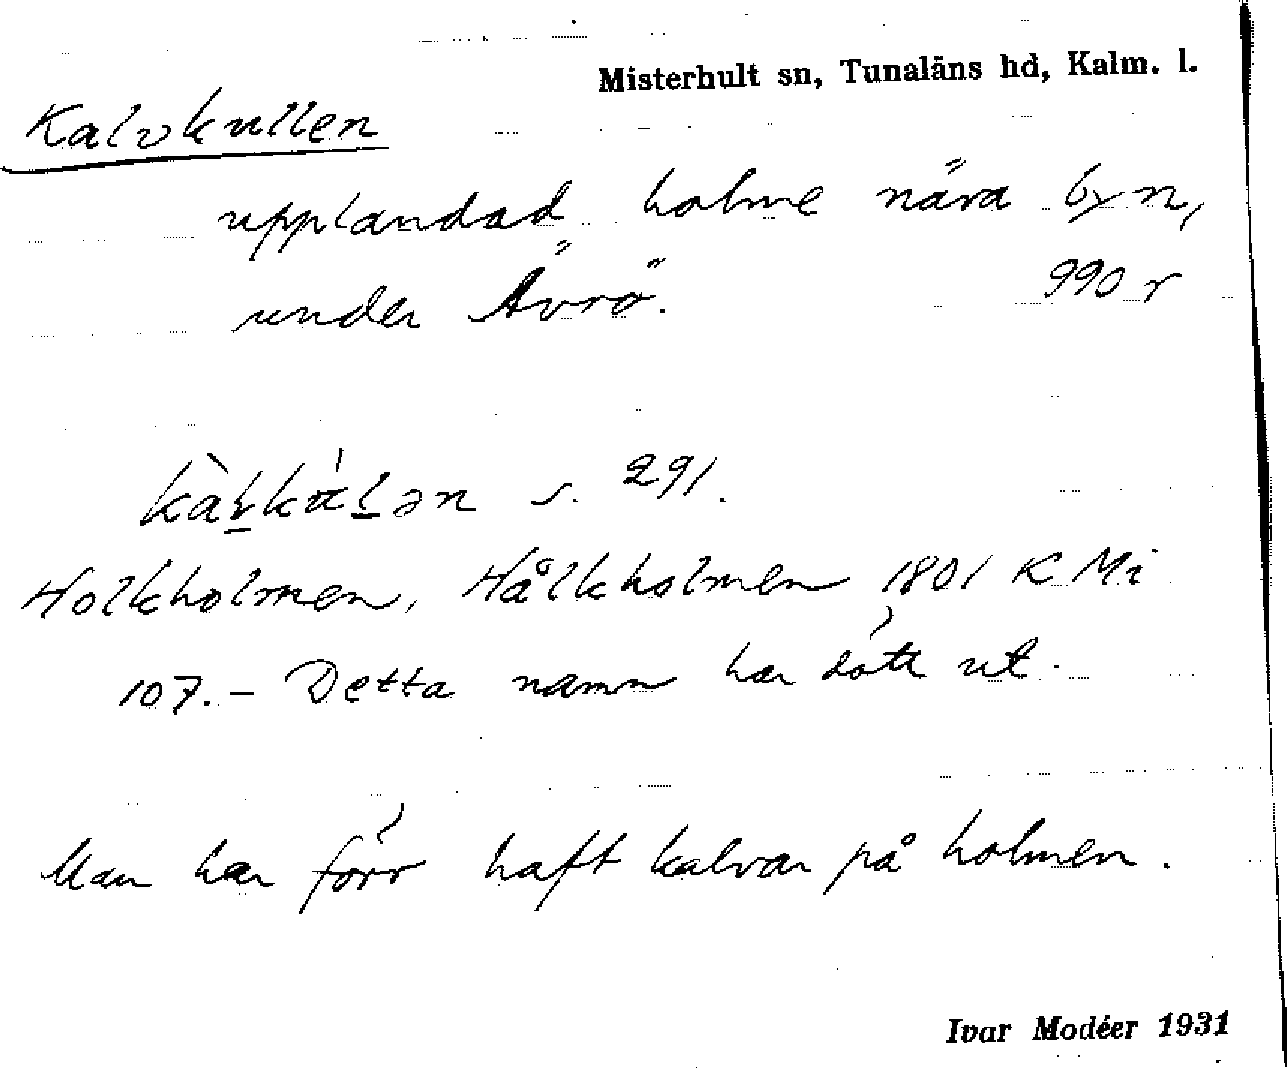 Misterhult sn, Tunaläns hd, Kalm. l.
Kalvkullen
upplandad holme nära byn,
under Ävrö. 990 r
s. 291.
Holkholmen, Hålkholmen 1801 K Mi
107. – Detta namn har dött ut.
Man har förr haft kalvar på holmen.
Ivar Modéer 1931